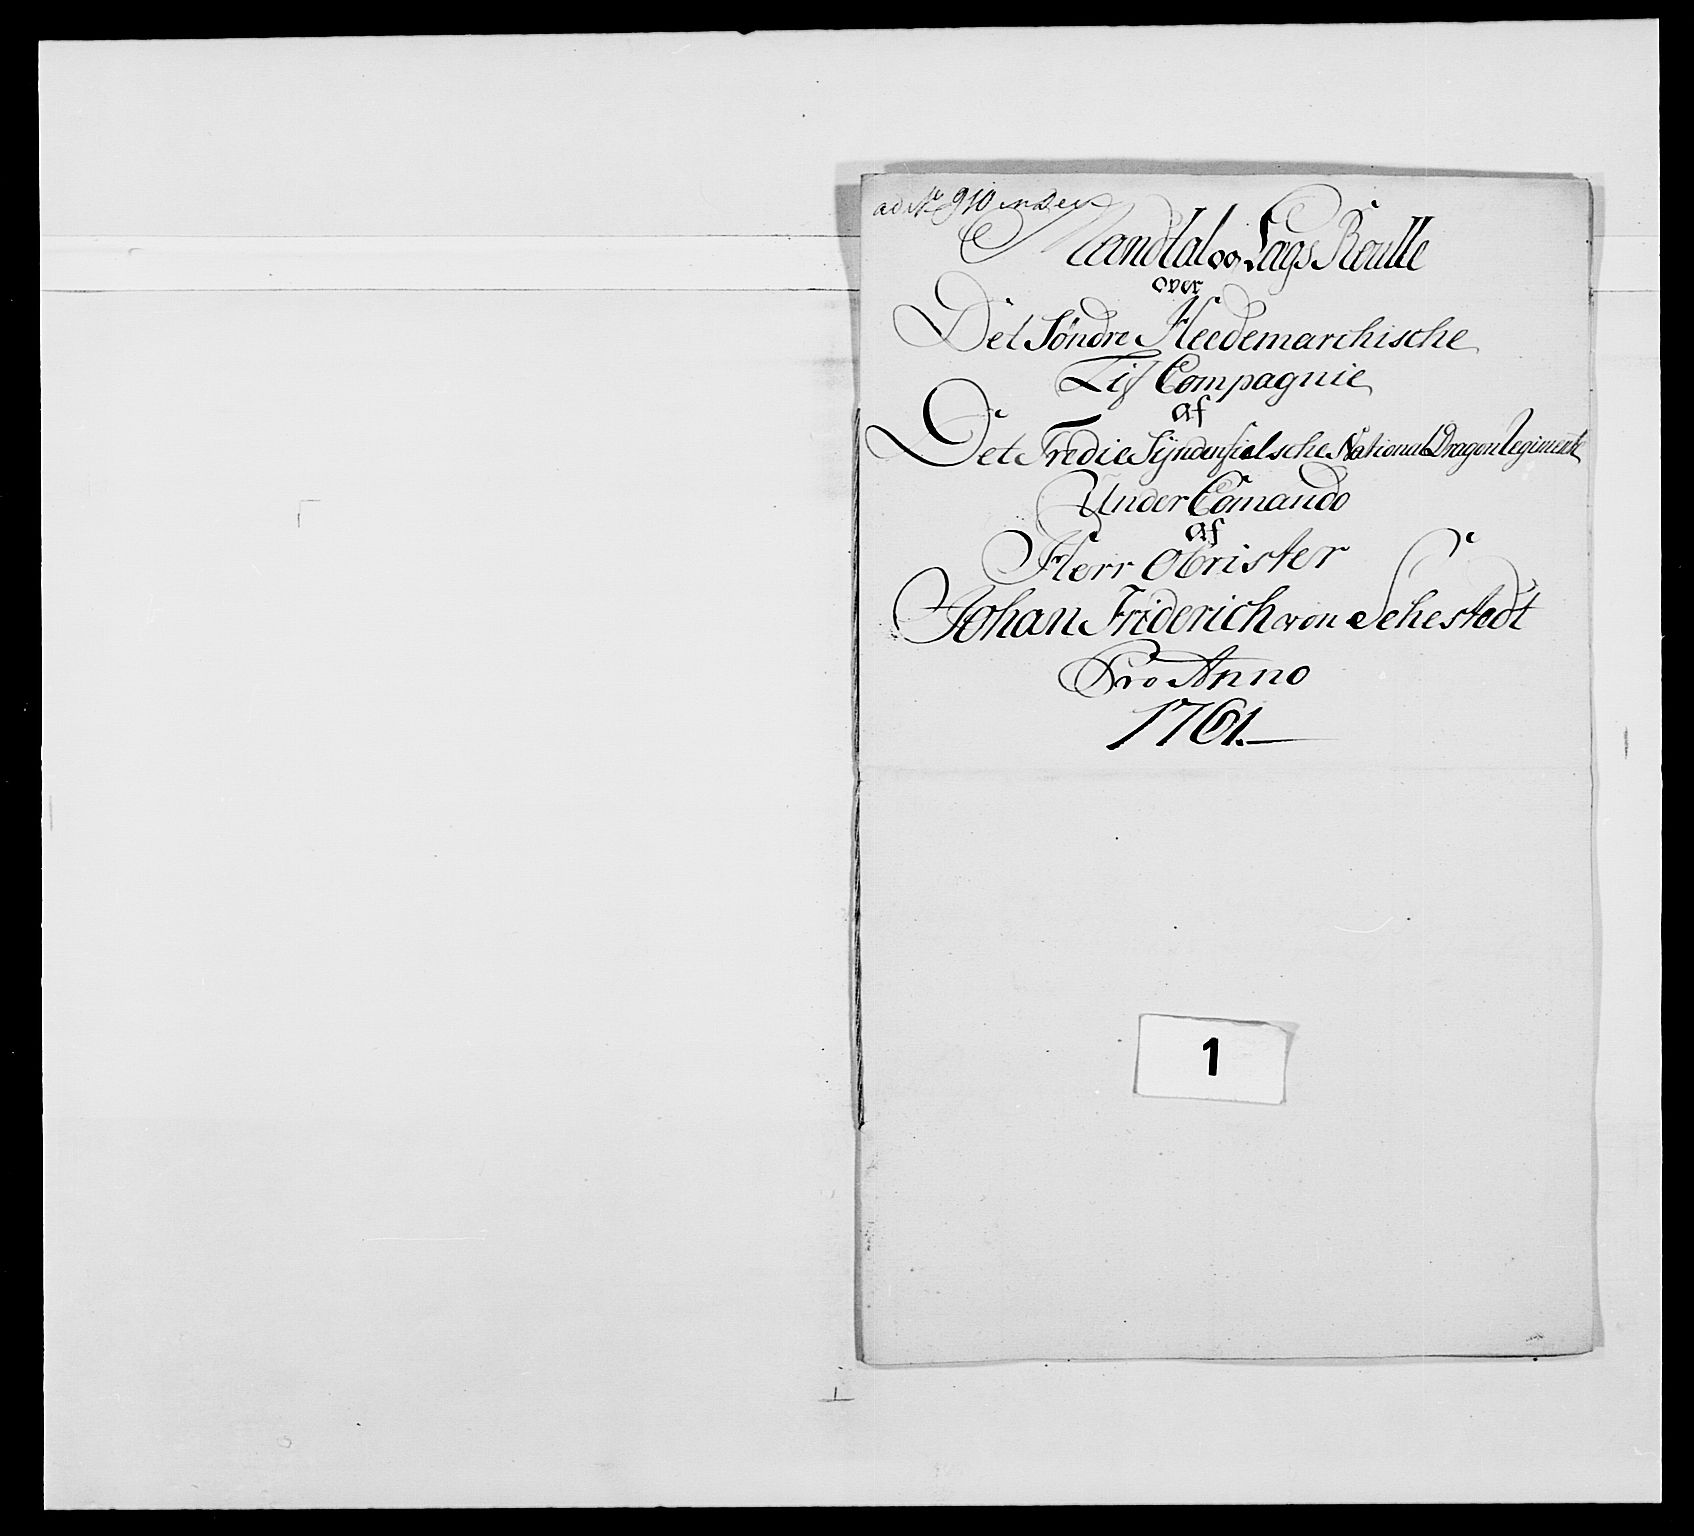 ad No 910
Mandtal og Lægs Roulle
over
Det Søndre Heedemarchische
Lif Compagnie
af
Det Tredie Syndenfielsche National Dragon Regimente
Under Comando
af
Herr Obrister
Johan Friderich von Sehestedt
Pro Anno
1761.
1